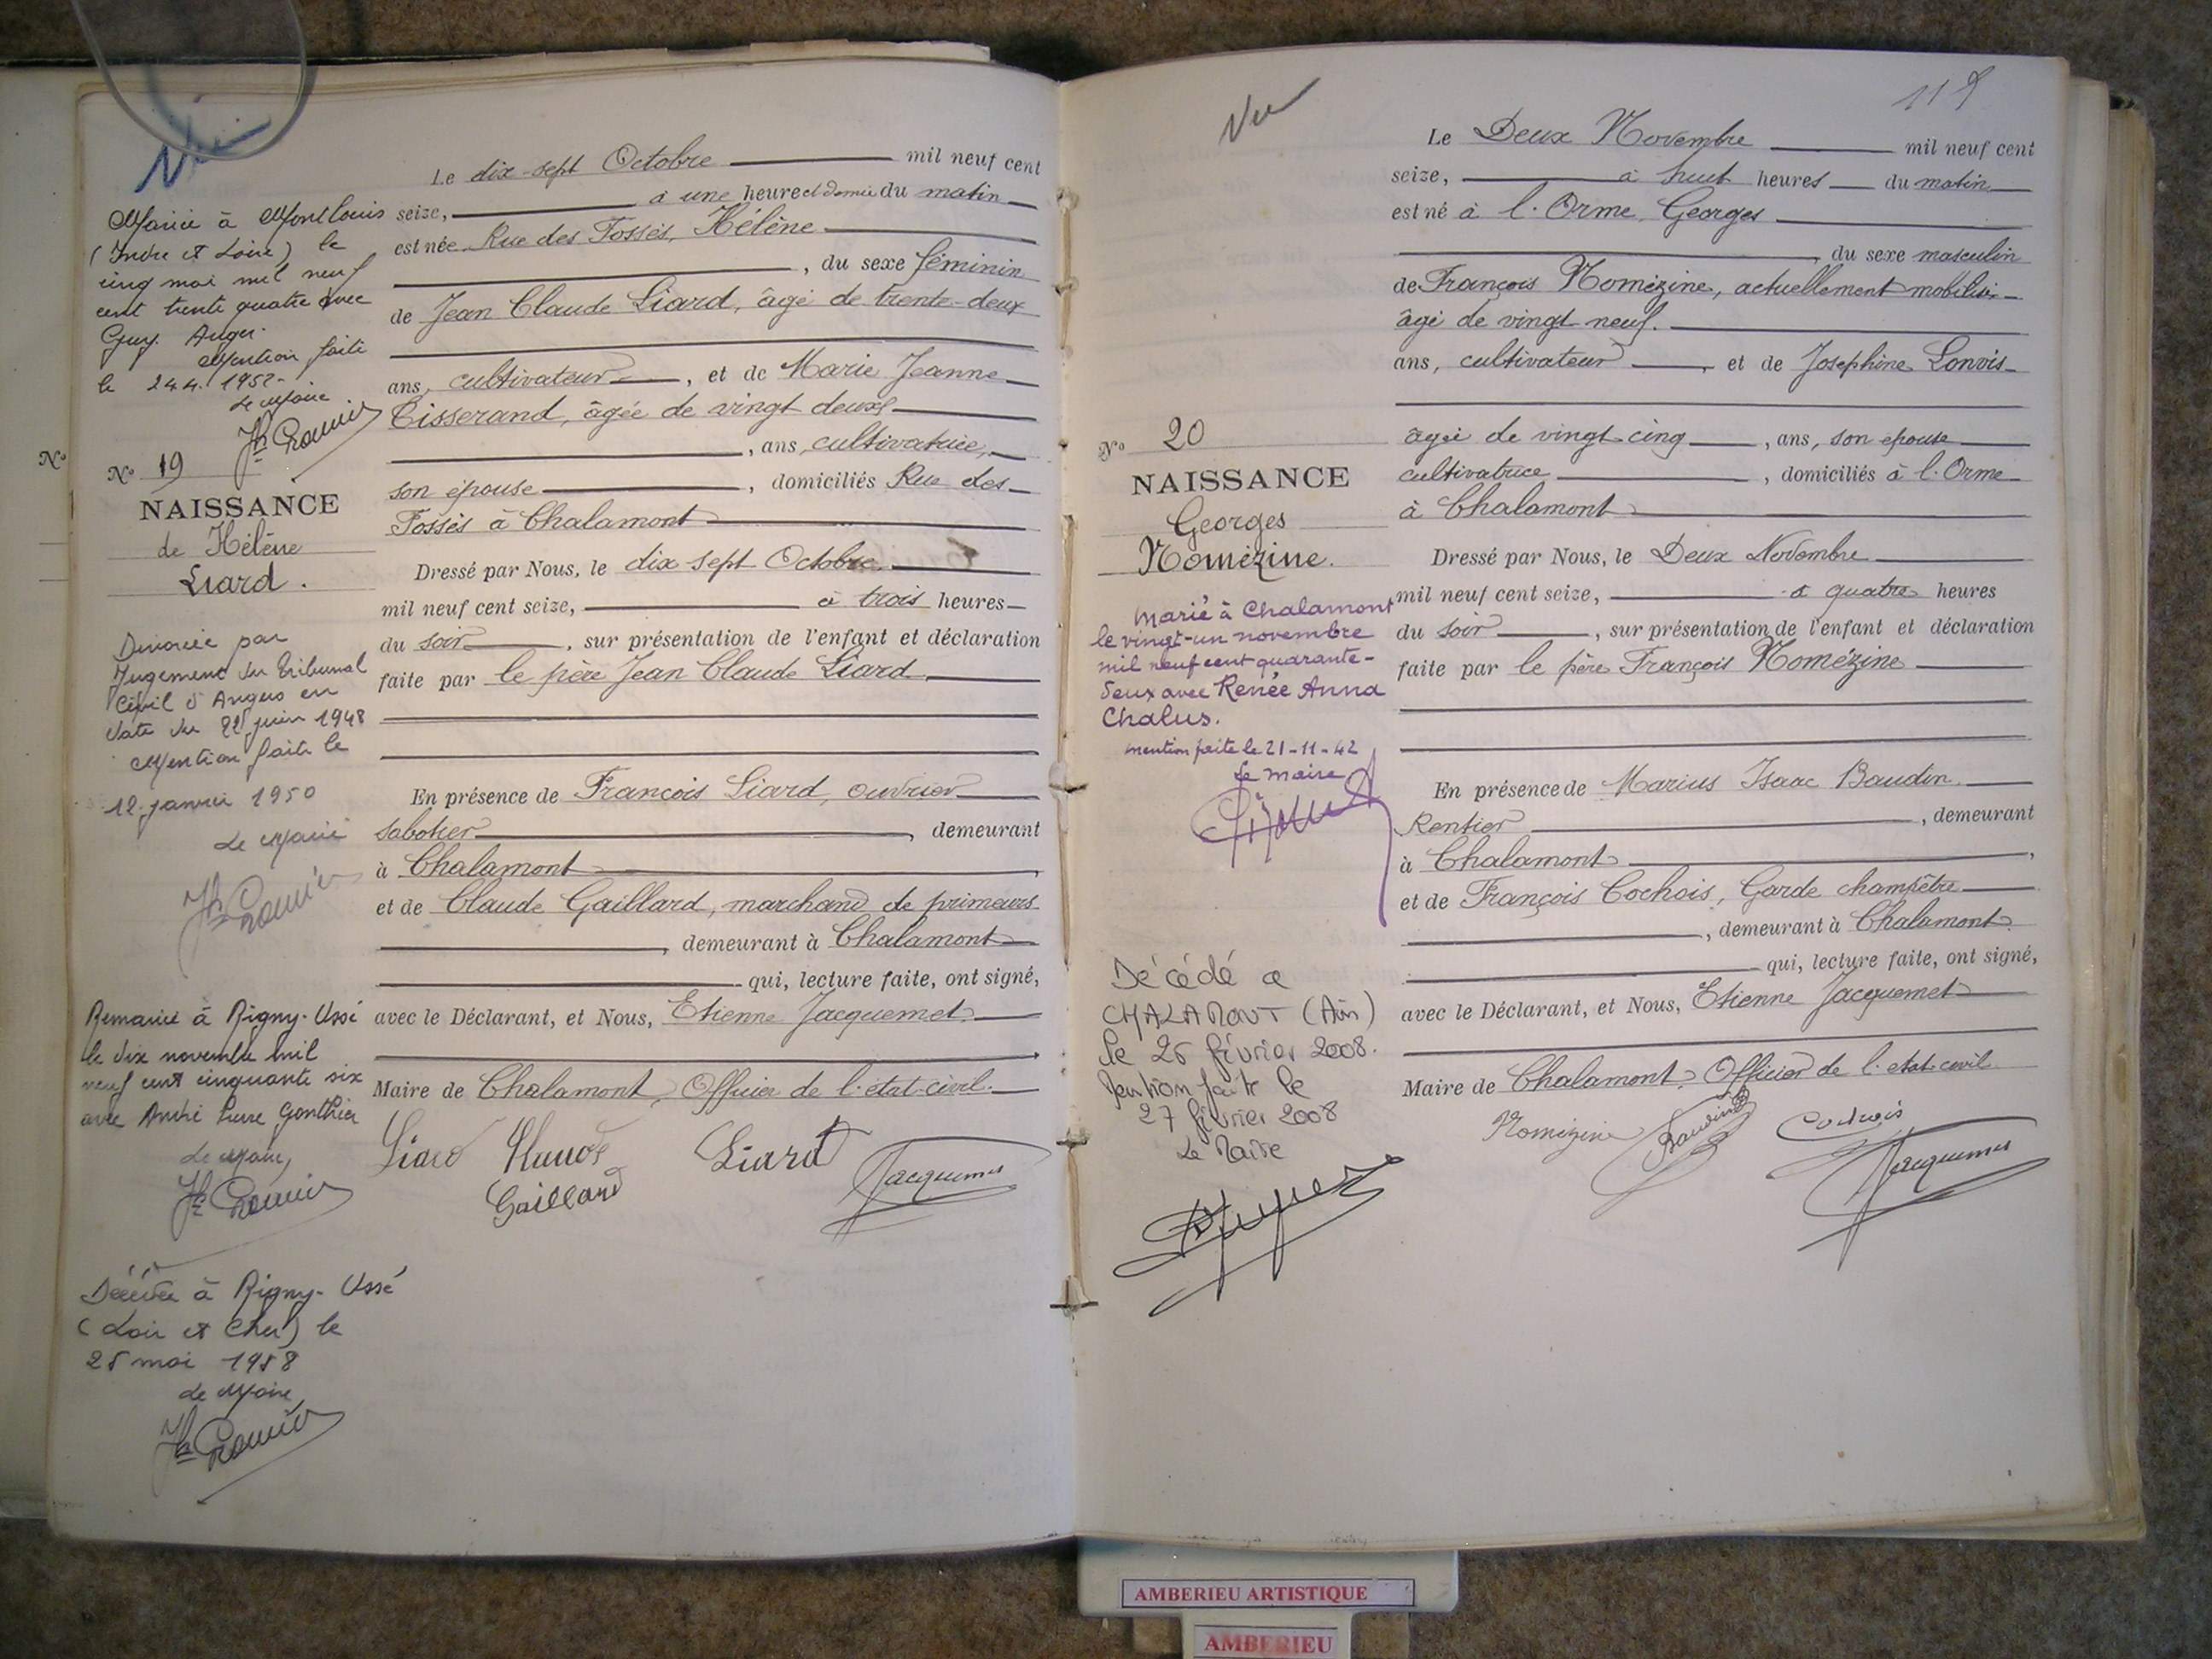 Vu
Mariée à Montlouis
(Indre et Loire) le
cinq mai mil neuf
cent trente quatre avec
Guy Auger.
Mention faite
le 24.4.1952-
Le Maire
N°
N° 19
NAISSANCE
de Hélène
Liard.
Divorcée par
Jugement du Tribunal
Civil d'Angers en
date du juin 1948
Mention faite le
12 janvier 1950
Le Maire
Remariée à Rigny-Ussé
le dix novembre mil
neuf cent cinquante six
avec André Pierre Gonthier
Le Maire,
Décédée à Rigny-Ussé
(Loir et Cher) le
25 mai 1958
Le Maire,
Le dix-sept Octobre mil neuf cent
seize, à une heure et demie du matin
est née Rue des Fossés, Hélène
, du sexe féminin
de Jean Claude Liard, âgé de trente-deux
ans, cultivateur, et de Marie Jeanne
Tisserand, âgée de vingt deux
, ans, cultivatrice,
son épouse, domiciliés Rue des
Fossés à Chalamont
Dressé par Nous, le dix-sept Octobre
mil neuf cent seize, à trois heures
du soir, sur présentation de l'enfant et déclaration
faite par le père Jean Claude Liard
En présence de François Liard, ouvrier
sabotier, demeurant
à Chalamont
et de Claude Gaillard, marchand de primeurs
, demeurant à Chalamont
qui, lecture faite, ont signé,
avec le Déclarant, et Nous, Etienne Jacquemet
Maire de Chalamont, Officier de l'état-civil.
Liard Claude Liard Jacquemet
Gaillard
Vu
N° 20
NAISSANCE
Georges
Nomézine.
Marié à Chalamont
le vingt-un novembre
mil neuf cent quarante-
deux avec Renée Anna
Chalus.
mention faite le 21-11-42
Le maire
Décédé à
CHALAMONT (Ain)
le 26 février 2008.
Mention faite le
27 février 2008
Le Maire
Le Deux Novembre mil neuf cent
seize, à huit heures du matin
est né à l'Orme, Georges
, du sexe masculin
de François Nomézine, actuellement mobilisé
âgé de vingt neuf.
ans, cultivateur, et de Joséphine Lonvis
âgée de vingt-cinq, ans, son épouse
cultivatrice, domiciliés à l'Orme
à Chalamont
Dressé par Nous, le Deux Novembre
mil neuf cent seize, à quatre heures
du soir, sur présentation de l'enfant et déclaration
faite par le père François Nomézine
En présence de Marius Isaac Baudin
Rentier, demeurant
à Chalamont,
et de François Cochois, Garde champêtre
, demeurant à Chalamont
qui, lecture faite, ont signé,
avec le Déclarant, et Nous, Etienne Jacquemet
Maire de Chalamont, Officier de l'état-civil
Nomézine Baudin Cochois
Jacquemet
AMBERIEU ARTISTIQUE
AMBERIEU